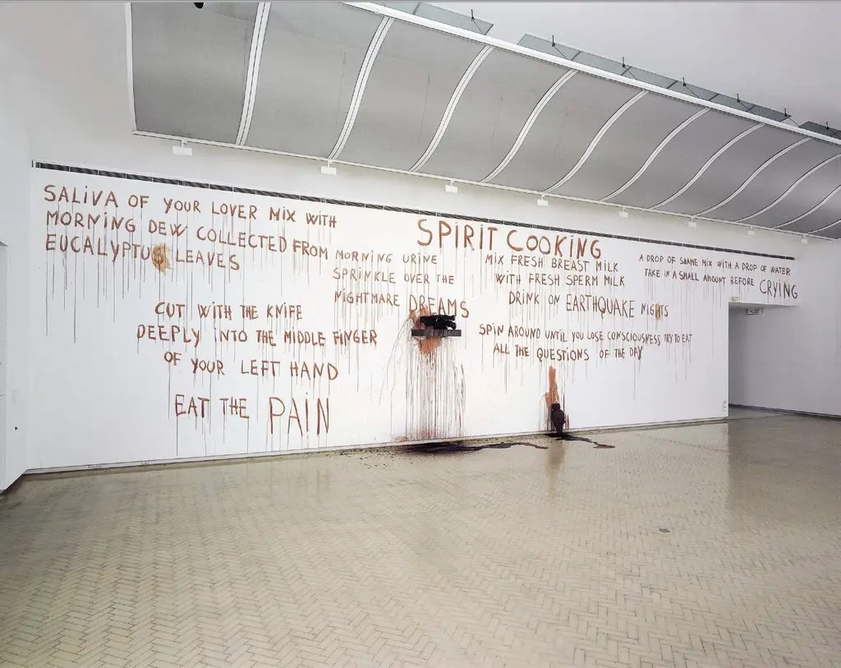 SALiVA OF YOUR LOVER MIX WITH
MORNING DEW COLLECTED FROM
EUCALYPTUS LEAVES
MORNING URINE
SPRINKLE OVER THE
NIGHTMARE DREAMS
SPIRIT COOKING
MIX FRESH BREAST MILK
WITH FRESH SPERM MILK
DRINK ON EARTHQUAKE NIGHTS
A DROP OF SHAME MIX WITH A DROP OF WATER
TAKE IN A SMALL AMOUNT BEFORE CRYING
CUT WITH THE KNIFE
DEEPLY iNTO THE MIDDLE FINGER
OF YOUR LEFT HAND
EAT THE PAiN
SPiN AROUND UNTiL YOU LOSE CONSCIOUSNESS TRY TO EAT
ALL THE QUESTIONS OF THE DAY